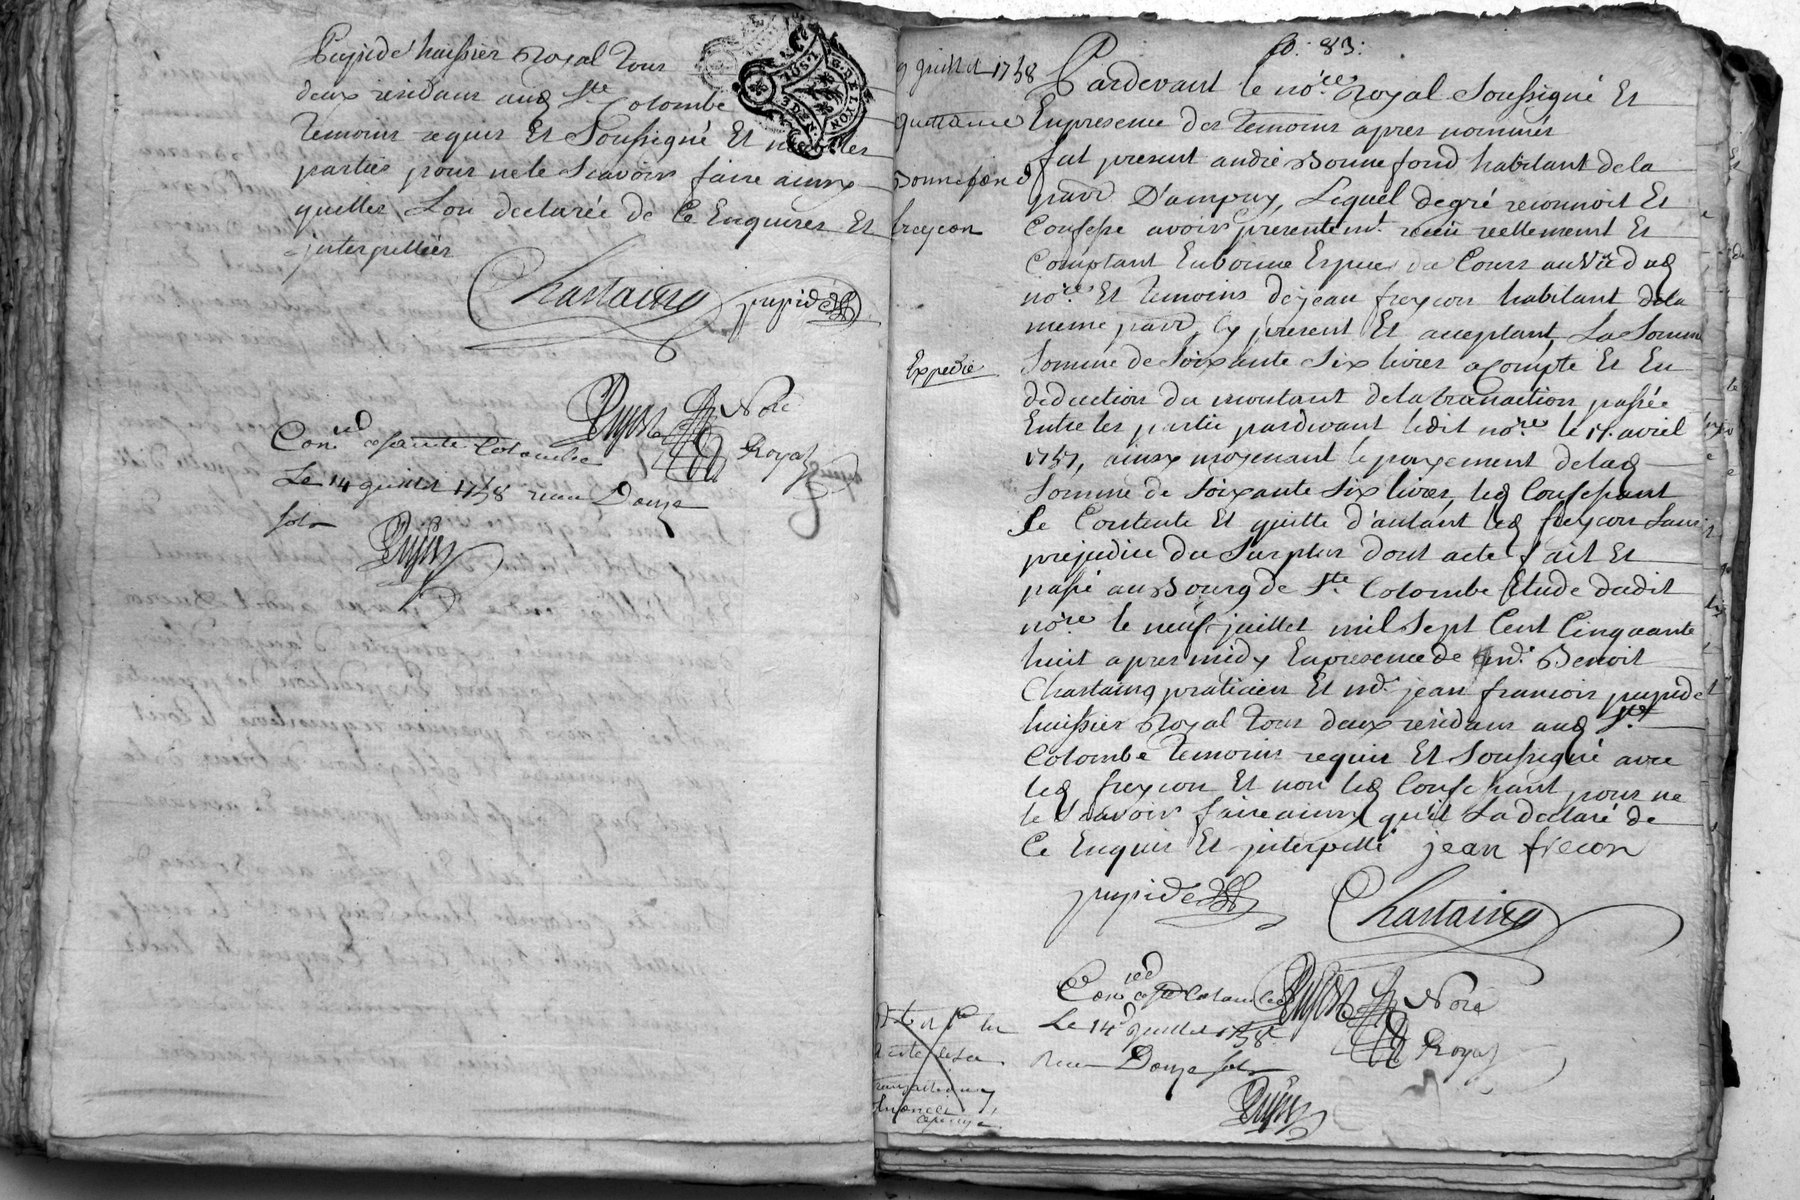 pupide huissier Royal tous
deux residans aud Ste Colombe
temoins requis Et Soussigné Et non les
parties pour ne le Scavoir faire ainsy
quelles Lon declarée de Ce Enquises Et
interpellées
Chastaing pupide
Con.led a sainte Colombe
Le 14 juillet 1758 reçu Douze
sols
Noré
Royal
G. DE LYON
fo. 83.
9 juillet 1758
quittance
Bonnefond
freycon
Expedié
Pardevant le no.re Royal Soussigné Et
Enpresence des temoins apres nommés
fut present andré Bonnefond habitant dela
parr D'ampuy, Lequel degré reconnoit Et
Confesse avoir presentemt. reçû réellement Et
Comptant En bonne Espece du Cours au Vû dud
no.re Et temoins de jean freycon habitant dela
meme parr, Cy present Et acceptant La Somme
Somme de Soixante Six livres acompte Et En
deduction du montant dela transaction passée
Entre les partie pardevant ledit no.re le 17. avril
1757, ainsy moyenant le payement delad
Somme de Soixante Six livres, led Confessant
Se Contente Et quitte d'autant led freycon Sans
prejudice du Surplus dont acte fait Et
passé au Bourg de Ste. Colombe Etude dudit
no.re le neuf juillet mil Sept Cent Cinquante
huit apres midy Enpresence de md. Benoit
Chastaing praticien Et md. jean francois pupide
huissier Royal tous deux residans aud Ste
Colombe temoins requis Et Soussigné avec
led freycon Et non led Confessant pour ne
le Scavoir faire ainsy qu'il La declaré de
Ce Enquis Et interpellé jean frecon
pupide Chastaing
Con.led a Ste Colombe
Noré
Le 14 juillet 1758
Royal
reçu Douze sols